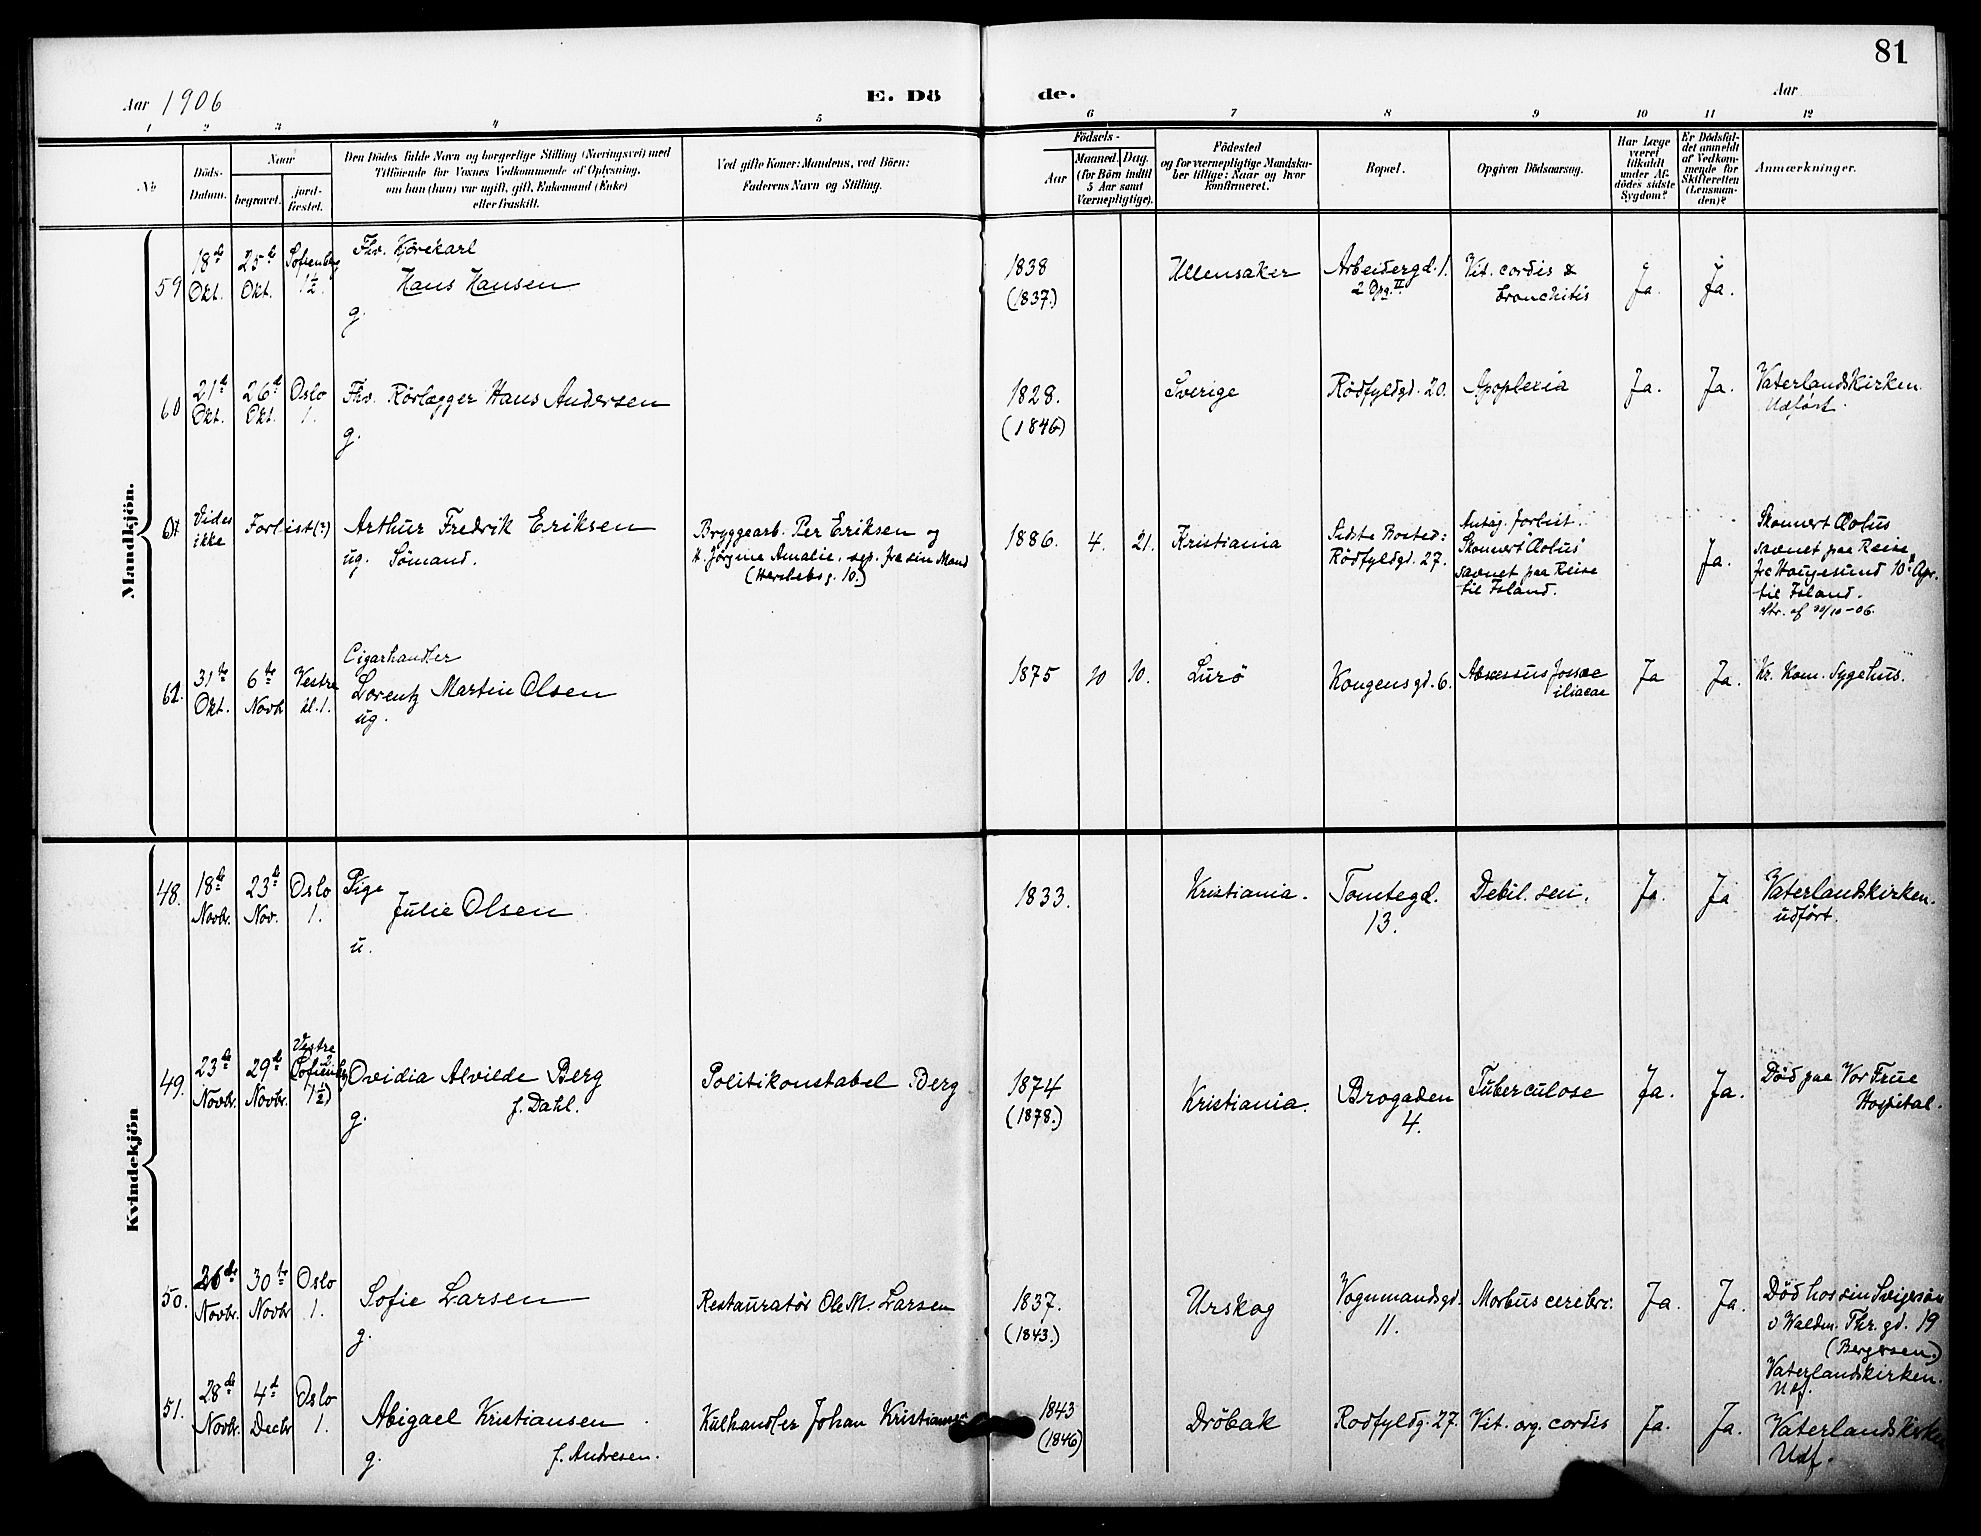 81
Aar 1906
E. Dö
de.
Aar
1 2 3 4 5 6 7 8 9 10 11 12
No
Döds-
Datum.
Naar
begravet.
jord-
fæstet.
Den Dödes fulde Navn og borgerlige Stilling (Næringsvei) med
Tilföiende for Voxnes Vedkommende af Oplysning,
om han (hun) var ugift, gift, Enkemand (Enke)
eller fraskilt.
Ved gifte Koner: Mandens, ved Börn:
Faderens Navn og Stilling.
Födsels-
Aar
Maaned. Dag.
(for Börn indtil
5 Aar samt
Værnepligtige).
Födested
og for værnepligtige Mandska-
ber tillige: Naar og hvor
konfirmeret.
Bopæl.
Opgiven Dödsaarsag.
Har Læge
været
tilkaldt
under Af-
dödes sidste
Sygdom?
Er Dödsfal-
det anmeldt
af Vedkom-
mende for
Skifteretten
(Lensman-
den)?
Anmærkninger.
Mandkjön.
59
18de
Okt.
25de
Okt.
Sofienberg
1½.
Fhv. Kjørekarl
Hans Hansen
g.
1838
(1837.)
Ullensaker
Arbeidergd. 1.
2 Opg. II.
Vit. cordis &
bronchitis
Ja.
Ja.
60
21de
Okt.
26de
Okt.
Oslo
1.
Fhv. Rörlægger Hans Andersen
g.
1828.
(1846)
Sverige
Rødfyldgd. 20.
Apoplexia
Ja.
Ja.
Vaterlandskirken
Udført.
61
Vides
ikke
Forlist(?)
Arthur Fredrik Eriksen
ug. Sömand.
Bryggearb. Per Eriksen og
H. Jörgine Amalie, sep. fra sin Mand
(Herslebsg. 10.)
1886. 4. 21.
Kristiania
Sidste Bosted:
Rødfyldgd. 27.
Antag. forlist.
Skonnert "Æolus"
savnet paa Reise
til Island.
Ja.
Skonnert Æolus
savnet paa Reise
fra Haugesund 10de Apr.
til Island.
62.
31te
Okt.
6te
Novb
Vestre
kl. 1.
Cigarhandler
Lorentz Martin Olsen
ug.
1875 10 10.
Lurö
Kongens gd. 6.
Abscessus fossae
iliacae
Ja
Ja.
Kr. Kom. Sygehus.
Kvindekjön
48.
18de
Novbr.
23de
Nov.
Oslo
1.
Pige
Julie Olsen
u.
1833.
Kristiania.
Tomtegd.
13.
Debil. sen.
Ja.
Ja
Vaterlandskirken.
udført.
49.
23de
Novbr.
29de
Novbr.
Vestre
1½)
Ovidia Alvilde Berg
f. Dahl.
g.
Politikonstabel Berg
1874
(1878.)
Kristiania.
Brogaden
4.
Tuberculose
Ja.
Ja.
Död paa Vor Frue
Hospital.
50.
26de
Novbr.
30te
Novbr
Oslo
1.
Sofie Larsen
g.
Restauratör Ole M. Larsen
1837.
(1843.)
Urskog
Vognmandsgd.
11.
Morbus cerebri.
Ja.
Ja.
Död hos sin Svigersøn
Waldm. Thr. gd. 19
(Bergersen.)
Vaterlandskirken.
Udf.
51.
28de
Novbr.
4de
Decbr
Oslo
1.
Abigael Kristiansen
f. Andresen.
g.
Kulhandler Johan Kristiansen
1843
(1846)
Dröbak
Rodfyldg. 27.
Vit. org. cordis
Ja.
Ja.
Vaterlandskirken
Udf.